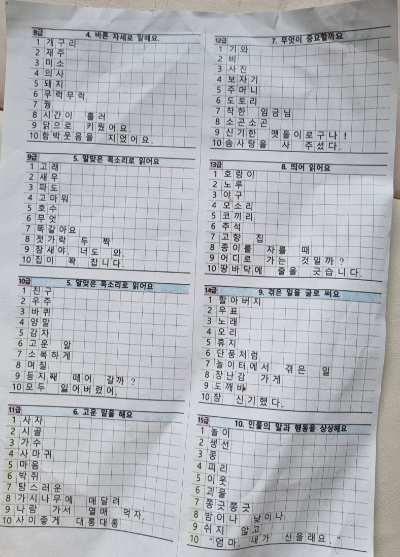 8급 4. 바른 자세로 말해요
1 개구리
2 재주
3 미소
4 의사
5 돼지
6 무럭무럭
7 꿩
8 시간이 흘러
9 닭으로 키웠어요.
10 함박웃음을 지었어요.
9급 5. 알맞은 목소리로 읽어요
1 고래
2 새우
3 파도
4 고마워
5 호수
6 무엇
7 똑같아요
8 젓가락 두 짝
9 참새야, 너도 와.
10 집이 꽉 찹니다.
10급 5. 알맞은 목소리로 읽어요
1 친구
2 우주
3 바퀴
4 양말
5 감자
6 고운 알
7 소복하게
8 며칠
9 둥지째 떼어 갈까?
10 모두 잃어버렸어.
11급 6. 고운 말을 해요
1 사자
2 시골
3 가수
4 사마귀
5 마음
6 박쥐
7 탐스러운
8 가시나무에 매달려
9 나랑 가서 열매 먹자.
10 사이좋게 대롱대롱
12급 7. 무엇이 중요할까요
1 기와
2 비
3 사진
4 보자기
5 주머니
6 도토리
7 착한 임금님
8 소곤소곤
9 신기한 맷돌이로구나!
10 솜사탕을 사 주셨다.
13급 8. 띄어 읽어요
1 호랑이
2 노루
3 야구
4 오소리
5 코끼리
6 추석
7 고향 집
8 종이를 자를 때
9 어디로 가는 것일까?
10 땅바닥에 줄을 긋습니다.
14급 9. 겪은 일을 글로 써요
1 할아버지
2 우표
3 노래
4 오리
5 휴지
6 단풍처럼
7 놀이터에서 겪은 일
8 장난감 가게
9 도깨비
10 참 신기했다.
15급 10. 인물의 말과 행동을 상상해요
1 놀이
2 생선
3 콩
4 피리
5 이웃
6 괴물
7 쫑긋쫑긋
8 밤이나 낮이나
9 쉬지 않고
10 "엄마, 내가 신을래요."